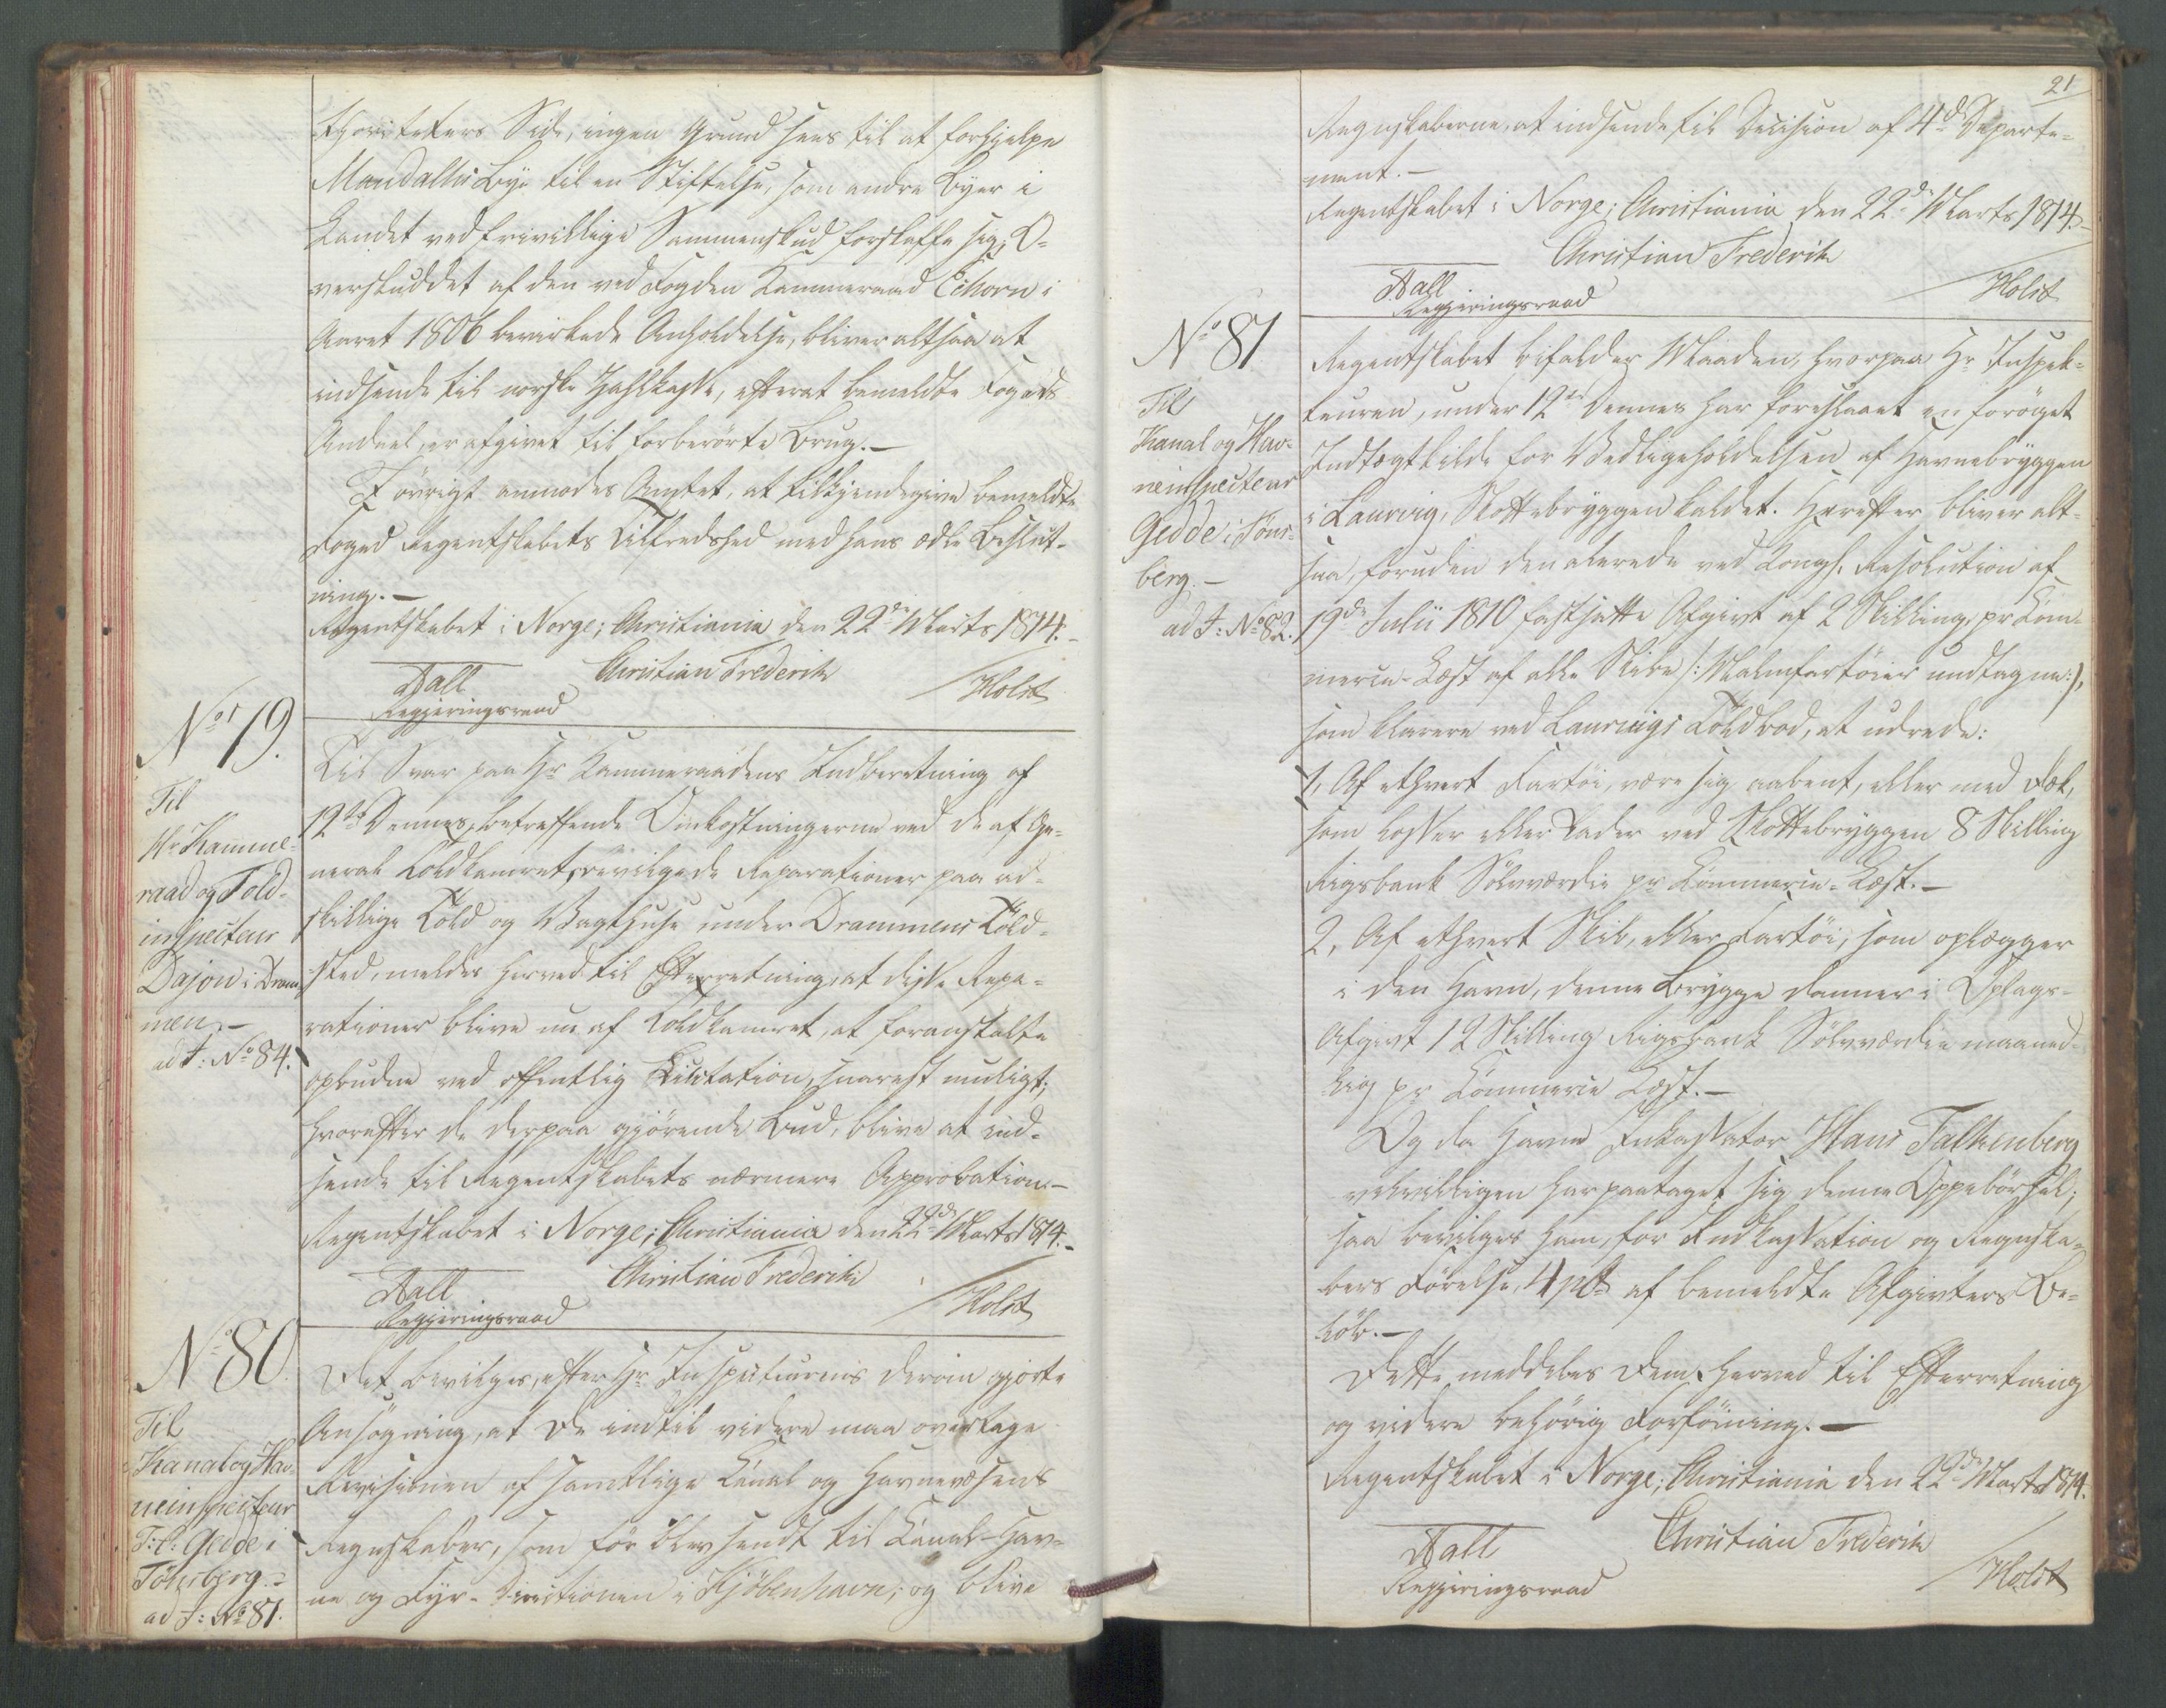 thoriteters Side, ingen Grund sees til at forhjelpe
Mandalls Bye til en Stiftelse, som andre Byer i
Landet ved frivillige Sammenskud forskaffe sig; O-
verskuddet af den ved Fogden Kammeraad Eihorn i
Aaret 1806 bevirkede Anholdelse, bliver altsaa at
indsende til norske Zahlkasse, efterat bemeldte Fogeds
Andeel er afgivet til forberørte Brug.—
I øvrigt anmodes Amtet, at tilkjendegive bemeldte
Foged Regentskabets Tilfredshed med hans ædle Beslut-
ning.—
Regentskabet i Norge; Christiania den 22de Marts 1814.-
Christian Frederik
Aall
Regjeringsraad
Holst
No 79.
Til
Hr Kamme-
raad og Told-
inspecteur
Dajon i Dram-
men.—
ad J: No 84.
Til Svar paa Hr Kammeraadens Indberetning af
12te Dennes, betreffende Omkostningerne ved de af Ge-
neral Toldkamret bevilgede Reparationer paa ad-
skillige Told og Vagthuse under Drammens Told-
sted, meldes herved til Efterretning, at disse Repa-
rationer blive nu af Toldkamret, at foranstalte
opbudne ved offentlig Licitation, snarest muligt;
hvorefter de derpaa gjørende Bud, blive at ind-
sende til Regentskabets nærmere Approbation.—
Regentskabet i Norge; Christiania den 22de Marts 1814.-
Christian Frederik
Aall
Regjeringsraad
Holst
No 80.
Til
Kanal og Hav-
neinspecteur
Gedde i
Tønsberg.-
ad J: No 81.
Det bevilges, efter Hr Inspecteurens derom gjorte
Ansøgning, at De indtil videre maa overtage
Revisionen af samtlige Canal og Havnevæsens
Regnskaber, som før blev sendt til Canal- Hav-
ne og Fyr- Directionen i Kjøbenhavn; og blive
21
Regnskaberne, at indsende til Decision af 4de Departe-
ment.—
Regentskabet i Norge; Christiania den 22de Marts 1814.-
Christian Frederik
Aall
Regjeringsraad
Holst
No 81
Til
Kanal og Hav-
neinspecteur
Gedde i Tøns-
berg.—
ad J: No 82.
Regentskabet bifalder Maaden, hvorpaa Hr Inspek-
teuren, under 12te Dennes har foreslaaet en forøget
Indtægtkilde for Vedligeholdelsen af Havnebryggen
i Laurvig, Skottebryggen kaldet. Herefter bliver alt-
saa, foruden den allerede ved Kongl. Resolution af
19de Julii 1810 fastsatte Afgivt af 2 Skilling pr Com-
mercie-Læst af alle Skibe /: Malmfartøier undtagne :/,
som klarere ved Laurvigs Toldbod, at udrede:
1, Af ethvert Fartøi, være sig aabent, eller med Dæk,
som losser eller lader ved Skottebryggen 8 Skilling
Rigsbank Sølvværdie pr Commercie-Læst.—
2, Af ethvert Skib, eller Fartøi, som oplægger
i den Havn, denne Brygge danner i Oplags-
Afgivt 12 Skilling Rigsbank Sølvværdie maaned-
lig pr Commercie Læst.—
Og da Havne Inkassator Hans Falkenberg
velvilligen har paataget sig denne Oppebørsel;
saa bevilges ham, for Indkassation og Regnska-
bers Førelse, 4 pCt af bemeldte Afgivters Be-
løb.—
Dette meddeles Dem herved til Efterretning
og videre behørig Forføining.—
Regentskabet i Norge; Christiania den 22de Marts 1814.
Christian Frederik
Aall
Regjeringsraad
Holst